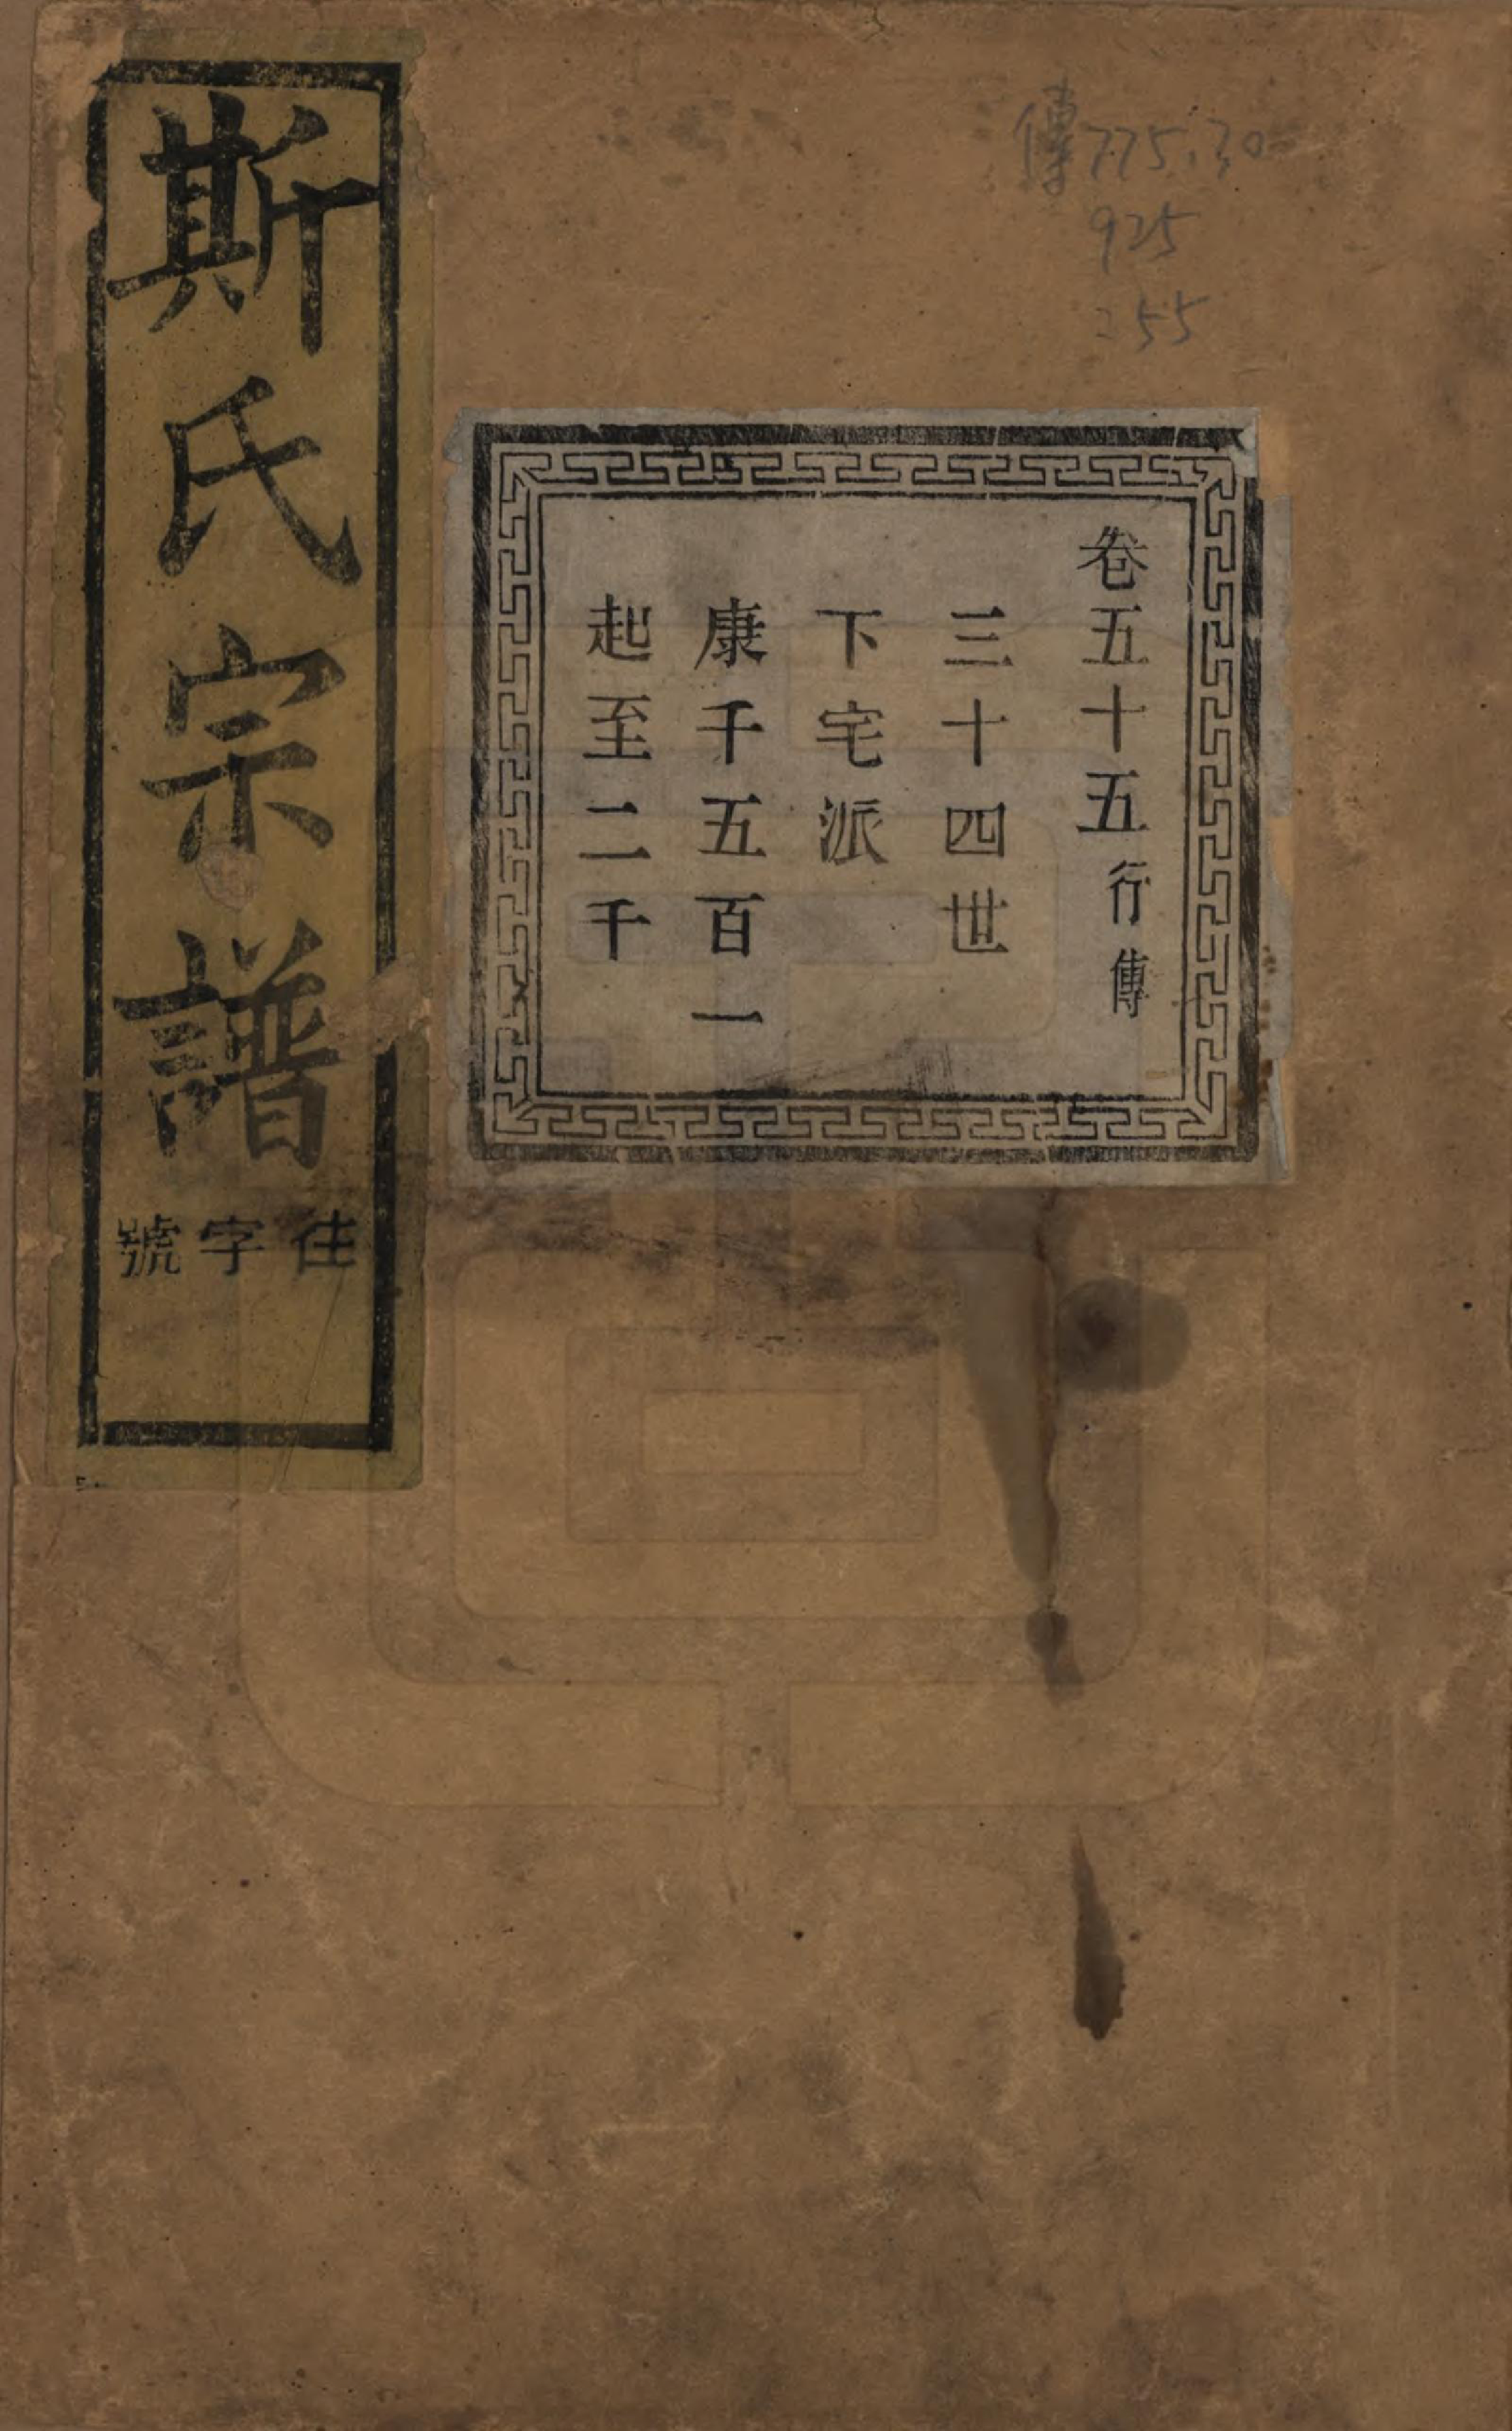 傳775.30
925
255
卷五十五行傳
三十四世
下宅派
康千五百一
起至二千
斯氏宗譜
往字號